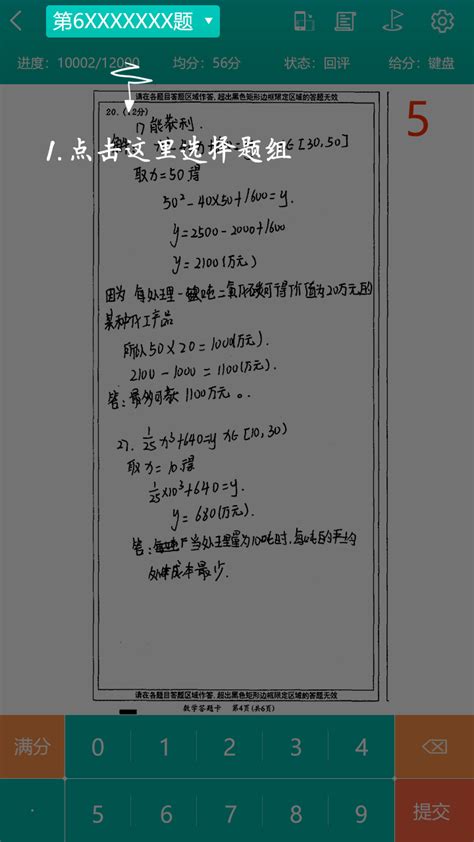 第6XXXXXXX题 ▼
进度：10002/12000 均分：56分 状态：回评 给分：键盘
请在各题目答题区域作答，超出黑色矩形边框限定区域的答题无效
20.（12分）
5
1.点击这里选择题组
[30,50]
取x=50得
50²-40×50+1600=y.
y=2500-2000+1600
y=2100(万元)
因为 每处理一吨二氧化碳可得价值为20万元的
某种化工产品
所以50×20=1000(万元).
2100-1000=1100(万元).
答:最多可获1100万元。
2). 1/25x³+640=y x∈[10,30)
取x=10得
1/25×10³+640=y.
y=680(万元).
答: 当处理量为10吨时,每吨的平均
处理成本最少.
请在各题目答题区域作答，超出黑色矩形边框限定区域的答题无效
数学答题卡 第4页(共6页)
满分 0 1 2 3 4
. 5 6 7 8 9 提交